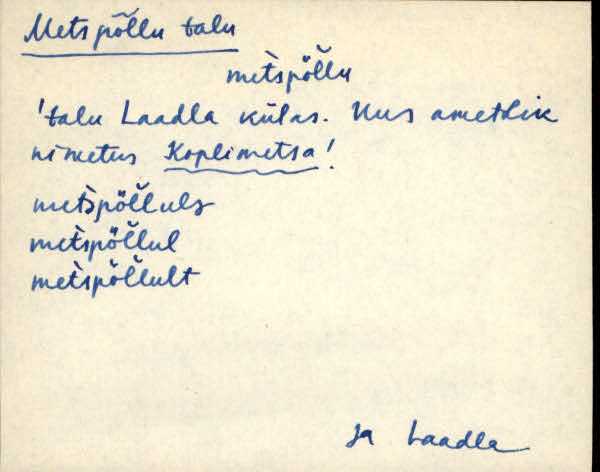 Metspõllu talu
metspõllu
'talu Laadla külas. Uus ametlik
nimetus Koplimetsa!
metspõllule
metspõllul
metspõllult
Ja Laadla